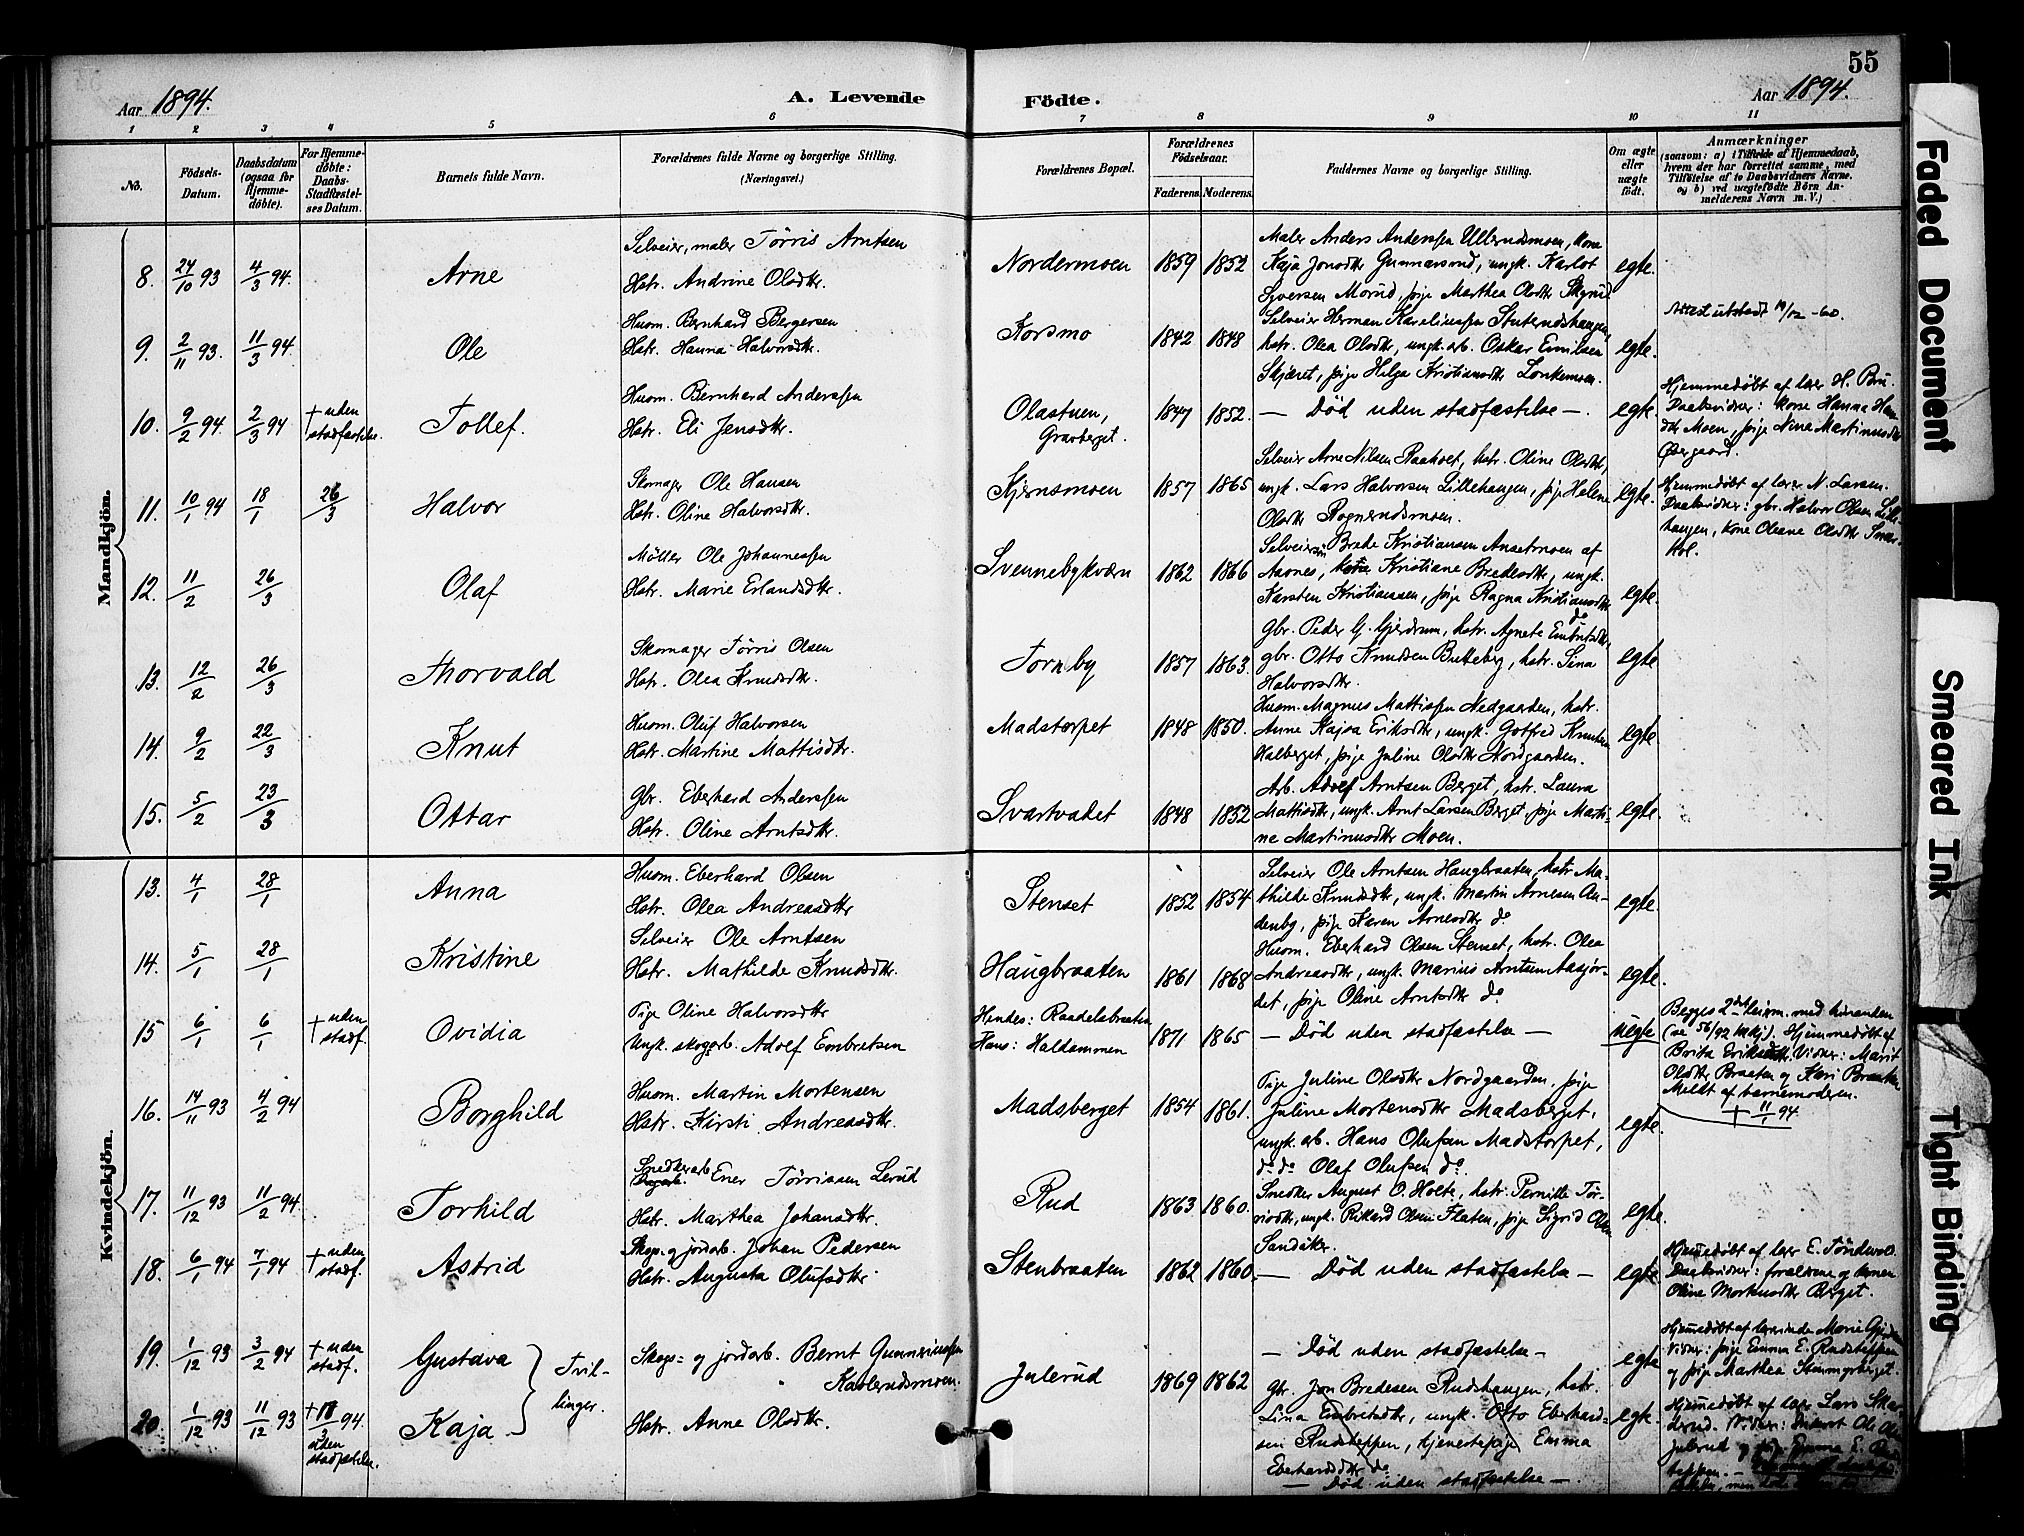 55
Aar 1894. A. Levende Födte. Aar 1894.
1 2 3 4 5 6 7 8 9 10 11
No.
Födsels-
Datum.
Daabsdatum
(ogsaa for
Hjemme-
döbte).
For Hjemme-
döbte:
Daabs-
Stadfæstel-
ses Datum.
Barnets fulde Navn.
Forældrenes fulde Navne og borgerlige Stilling.
(Næringsvei.)
Forældrenes Bopæl.
Forældrenes
Födselsaar.
Faderens. Moderens.
Faddernes Navne og borgerlige Stilling.
Om ægte
eller
uægte
födt.
Anmærkninger
(saasom: a) i Tilfælde af Hjemmedaab,
hvem der har forrettet samme, med
Tilföielse af to Daabsvidners Navne,
og b) ved uægtefödte Börn An-
melderens Navn m.V.)
Mandkjön.
8. 24/10 93 4/3 94. Arne
Selveier, maler Tørris Arntsen
Hstr. Andrine Olsdtr.
Nordermoen 1859 1852
Maler Anders Anderssen Ullerudsmoen, kone
Kaja Jonsdtr Gunnarsrud, ungk. Karlot
Syversen Morud, pige Marthea Olsdtr
egte.
9. 2/11 93. 11/3 94. Ole
Huom. Bernhard Bergersen
Hstr. Hanna Halvorsdtr.
Korsmo 1842 1848
Selveier Herman Kareliussen
hstr. Olea Olsdtr, ungk. arb. Oskar Emilsen
Skjæret, pige Helga Kristiansdtr Lonkemoen.
egte.
Attest utstedt 19/12 -60.
10. 9/2 94. 2/3 94 † uden stadfæstelse. Tollef.
Huom. Bernhard Anderssen
Hstr. Eli Jensdtr.
Olastuen,
Gravberget.
1847 1852.
— Död uden stadfæstelse —.
egte.
Hjemmedøbt af lær H. Bru.
Daabsvidner: kone Hanna Han
dtr Moen, pige Nina Martinusdtr
Øvergaard.
11. 10/1 94 18/1 26/3 Halvor
Skomager Ole Hansen
Hstr. Oline Halvorsdtr.
Kjernsmoen 1857 1865
Selveier Arne Nilsen Raaholt, hstr. Oline Olsdtr,
ungk. Lars Halvorsen Lillehaugen, pige Helene
Olsdtr Rognerudsmoen.
egte.
Hjemmedøbt af lær N. Larsen.
Daabsvidner: gbr. Halvor Olsen Lille
haugen, kone Oleane Olsdtr Snar
hol.
12. 11/2 26/3 Olaf
Møller Ole Johannessen
Hstr. Marie Erlandsdtr.
Svennebykværn 1862 1866
Selveiersøn Brede Kristiansen Ansetmoen af
Aasnes, Kristiane Bredesdtr, ungk.
Karsten Kristiansen, pige Ragna Kristiansdtr
do
egte.
13. 12/2 26/3 Thorvald
Skomager Tørris Olsen
Hstr. Olea Knudsdtr.
Tornby 1857 1863.
Gbr. Peder G. Gjerdrum, hstr. Agnete Embretsdtr,
gbr. Otto Knudsen Butteberg, hstr. Sina
Halvorsdtr.
egte
14. 9/2 22/3 Knut
Huom. Oluf Halvorsen
Hstr. Martine Mattisdtr.
Madstorpet 1848 1850.
Huom. Magnus Mattissen Nedgaarden, hstr.
Anne Kajsa Eriksdtr, ungk. Gotfred Knutsen
Halberget, pige Juline Olsdtr Nordgaarden.
egte.
15. 5/2 23/3 Ottar
Gbr. Eberhard Anderssen
Hstr. Oline Arntsdtr.
Svartvadet 1848 1852
Arb. Adolf Arntsen Berget, hstr. Laura
Mattisdtr, ungk. Arnt Larsen Berget, pige Marti-
ne Martinusdtr Moen.
egte.
Kvindekjön.
13. 4/1 28/1 Anna
Huom. Eberhard Olsen
Hstr. Olea Andreasdtr
Stenset 1852 1854
Selveier Ole Arntsen Haugbraaten, hstr Ma-
thilde Knudsdtr, ungk. Martin Arnesen An-
denby, pige Karen Arnesdtr do
egte.
14. 5/1 28/1 Kristine
Selveier Ole Arntsen
Hstr. Mathilde Knudsdtr.
Haugbraaten 1861 1868
Huom. Eberhard Olsen Stenset, hstr. Olea
Andreasdtr, ungk. Marius Arntsen Aasjor-
det, pige Oline Arntsdtr do
egte.
15 6/1 6/1 † uden stadf. Ovidia
Pige Oline Halvorsdtr
Ungk. skogsarb. Adolf Embretsen
Hendes: Raadelsbraaten
Hans: Haldammen
1871 1865
— Död uden stadfæstelse —
uegte
Begges 2det leierm. med hinanden
(se 56/92 ). Hjemmedøbt af
Brita Eriksdtr. Vidner: Marit
Olsdtr Braaten og Kari Braaten
Meldt af barnemoderen.
† 11/1 94
16. 14/11 93 4/2 94 Borghild
Huom. Martin Mortensen
Hstr. Kirsti Andreasdtr.
Madsberget 1854 1861.
Pige Juline Olsdtr Nordgaarden, pige
Juline Mortensdtr Madsberget,
ungk. arb. Hans Olufsen Madstorpet,
do do Olaf Olufsen do.
egte.
17. 11/12 93 11/2 94. Torhild
Snedkerarb. Ener Tørrissen Lerud
Hstr. Marthea Johansdtr.
Rud 1863 1860.
Snedker August O. Holte, hstr. Pernille Tør-
risdtr, ungk. Rikard Olsen Flaten, pige Sigrid Olsen
Sandåker.
egte.
18. 6/1 94 7/1 94 † uden stadf. Astrid
Skogs. og jordarb. Johan Pedersen
Hstr. Augusta Olufsdtr
Stenbraaten 1862 1860.
— Död uden stadfæstelse —
egte
Hjemmedøbt af lær E. Tøndevold.
Daabsvidner: forældrene og konen
Oline Mortensdtr Berget.
19. 1/12 93 3/2 94 † uden stadf. Gustava
Tvil-
linger.
Skogs- og jordarb. Bernt Gunneriussen
Kaalerudsmoen.
Julerud 1869 1862
— Död uden stadfæstelse —
egte
Hjemmedøbt af lærerinde Marie
Vidner: pige Emma E. Rudsteppen
og pige Marthea
20. 1/12 93 11/12 93 † 18/3 94. uden stadfæstelse. Kaja.
Hstr. Anne Olsdtr.
Gbr. Jon Bredesen Rudshaugen, hstr.
Lina Embretsdtr, ungk. Otto Eberhard-
sen Rudsteppen, tjenestepige Emma
Eberhardsdtr do
— Död uden stadfæstelse —.
egte.
Hjemmedøbt af lær Lars
Vidner: Ole
Julerud og pige Emma E. Rud
teppen. —
Faded Document
Smeared Ink
Tight Binding